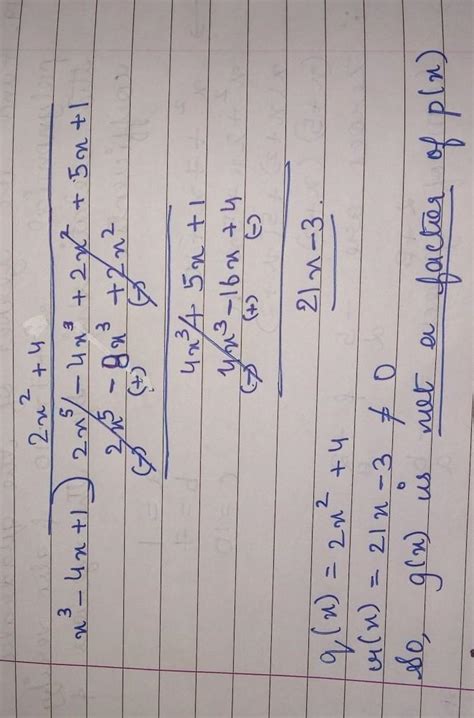 2x² + 4
x³ - 4x + 1 ) 2x⁵ - 4x³ + 2x² + 5x + 1
2x⁵ - 8x³ + 2x²
(-) (+) (-)
4x³ + 5x + 1
4x³ - 16x + 4
(-) (+) (-)
21x - 3.
q(x) = 2x² + 4
r(x) = 21x - 3 ≠ 0
So, g(x) is not a factor of p(x)